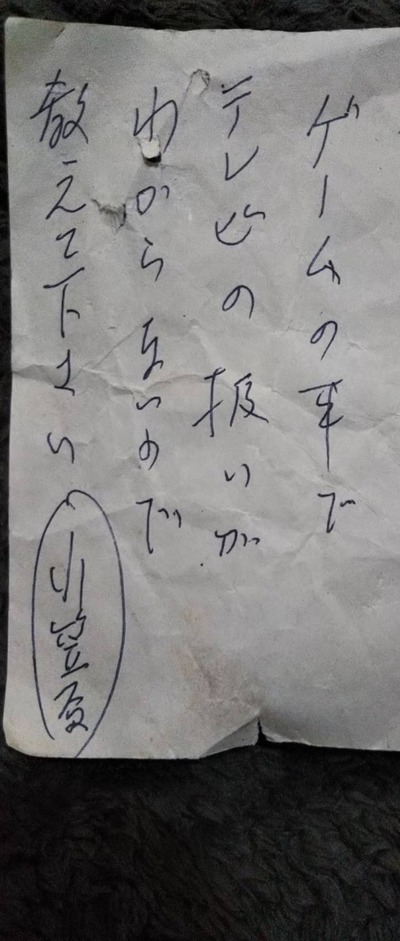 ゲームの事で
テレビの扱いが
わからないので
教えて下さい、